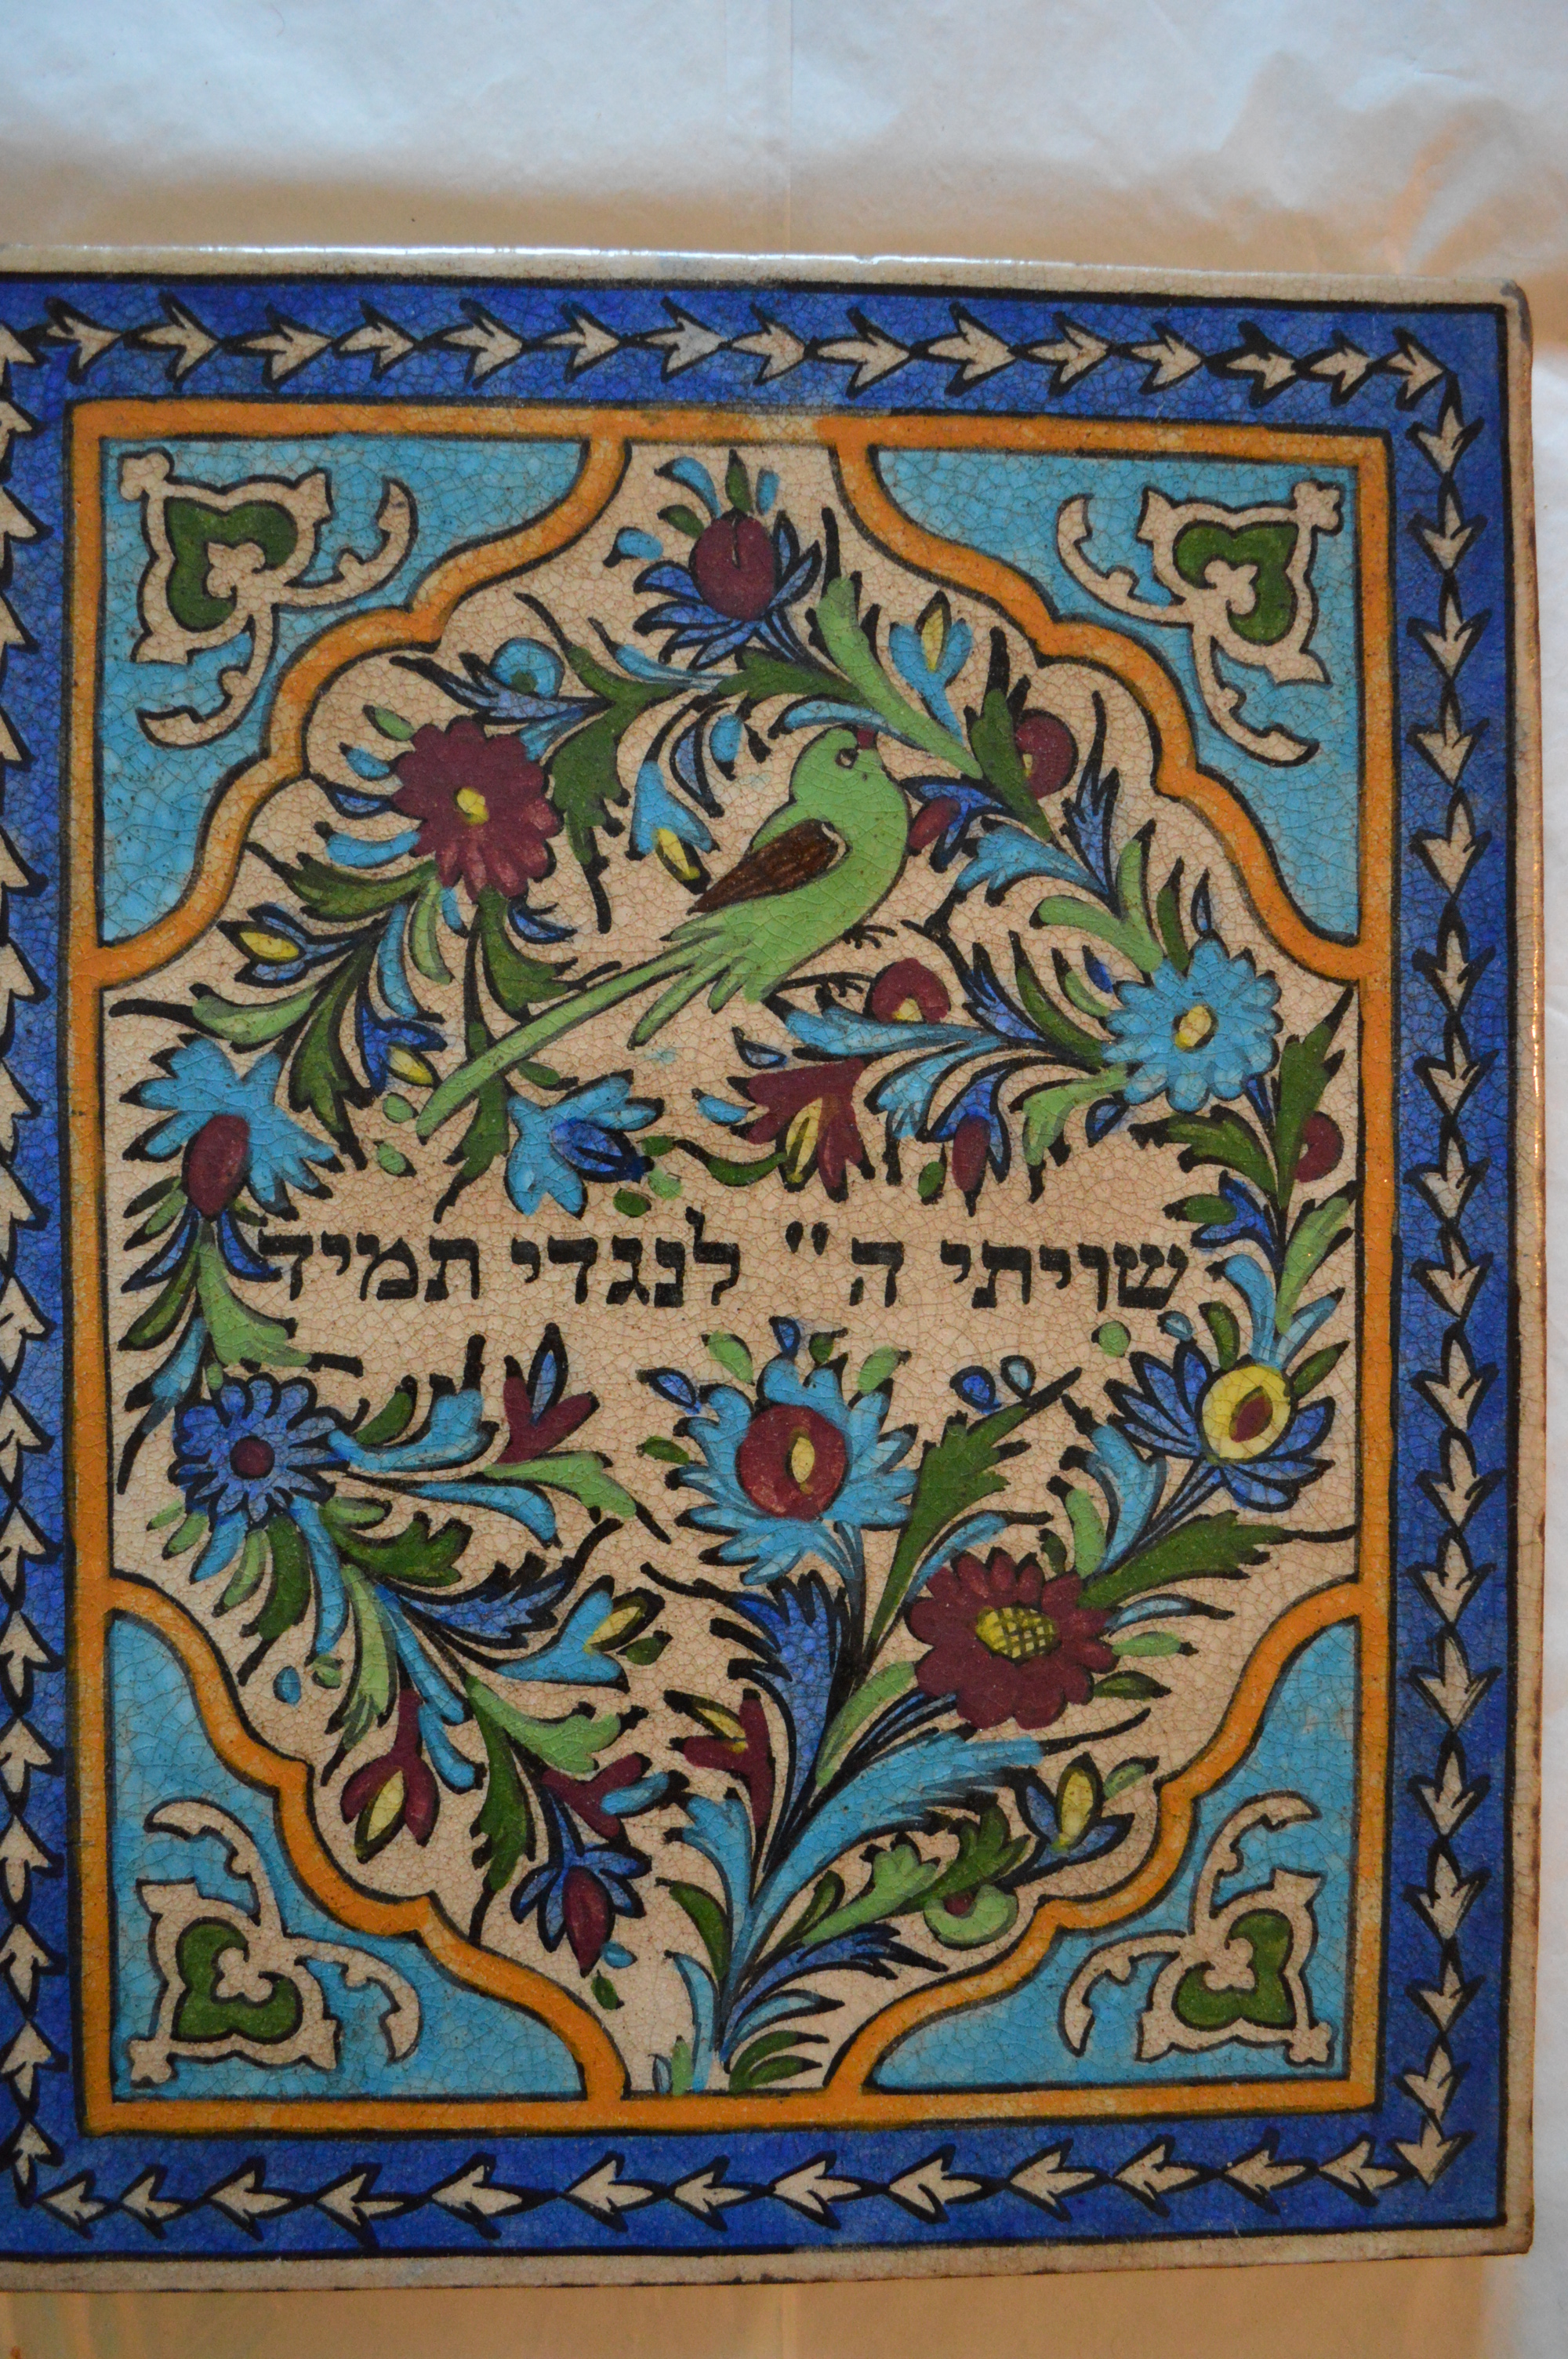 שויתי ה״ לנגדי תמיד